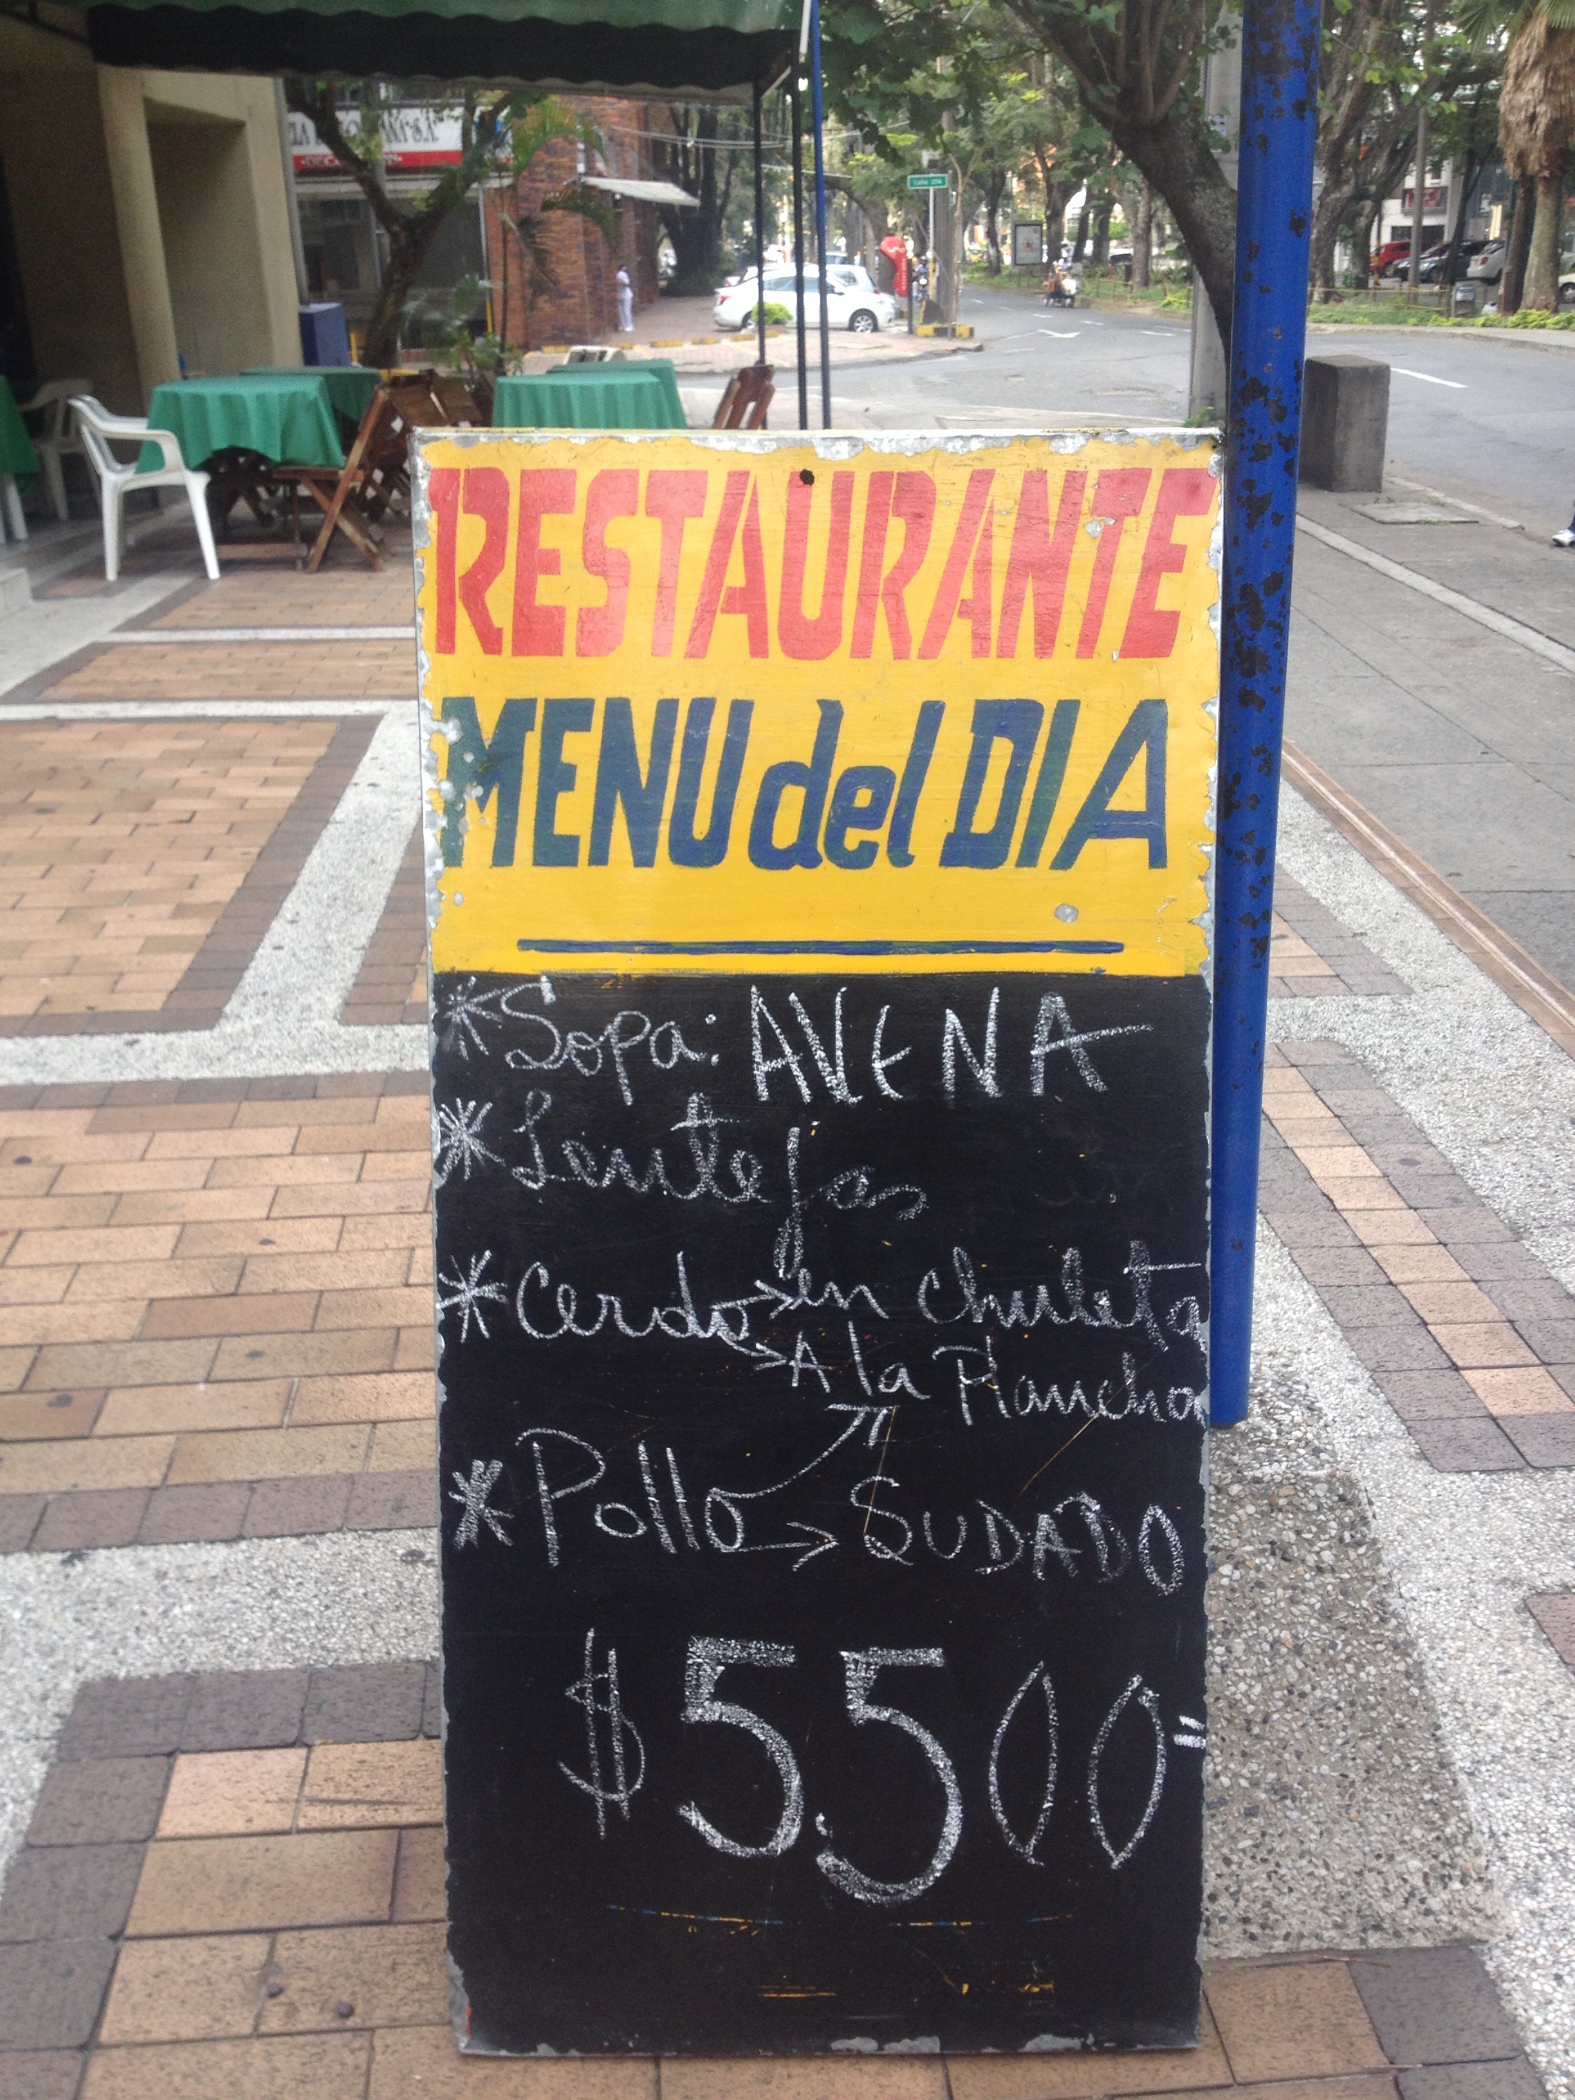 RESTAURANTE
MENU del DIA
*Sopa: AVENA
*Lentejas
*Cerdo → en chuleta
→ A la Plancha
*Pollo → SUDADO
$5.500=